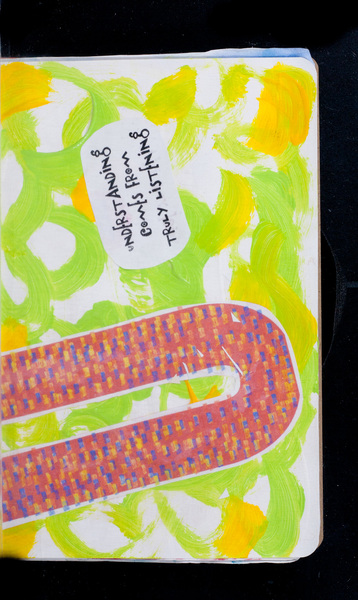 UNDERSTANDING
COMES FROM
TRULY LISTENING